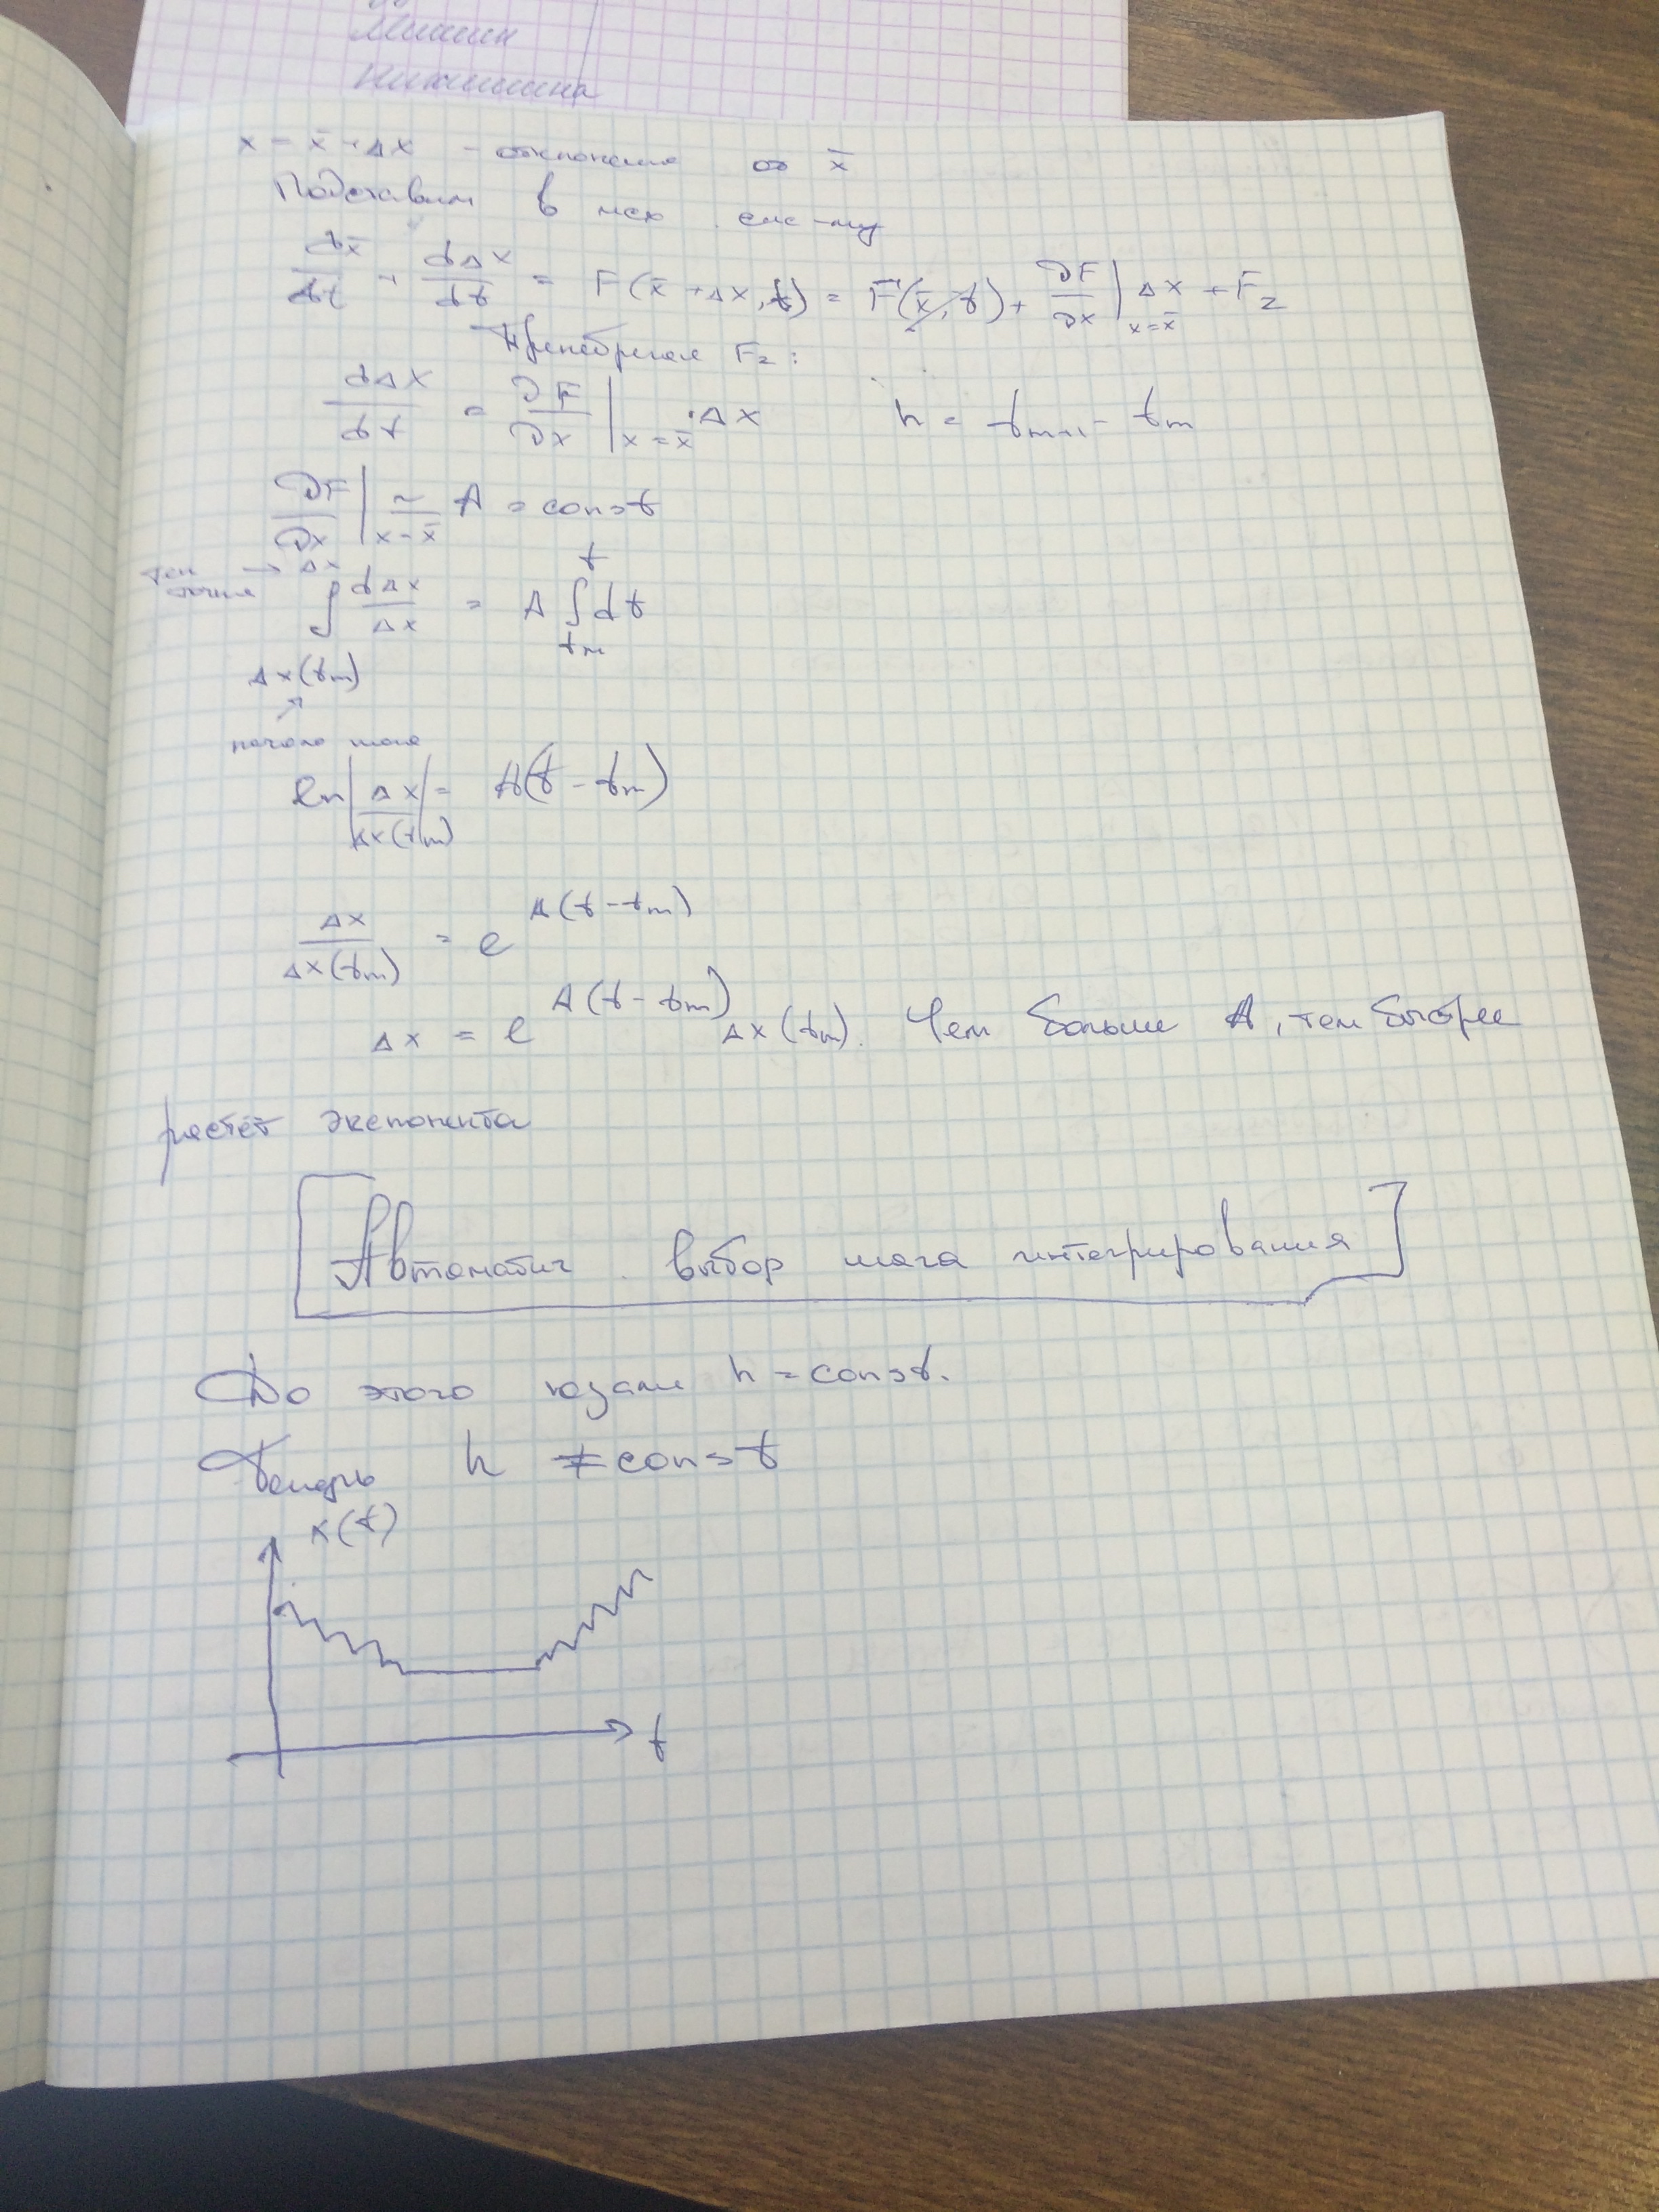 Мишин
Никишина
x = x̄ + Δx – отклонение от x̄
Подставим в исх. сис-му
dx̄/dt + dΔx/dt = F(x̄ + Δx, t) = F(x̄, t) + ∂F/∂x |x=x̄ Δx + F₂
Пренебрегая F₂:
dΔx/dt = ∂F/∂x |x=x̄ · Δx h = tm+1 - tm
∂F/∂x |x=x̄ ≃ A = const
тек точка → Δx ∫ dΔx/Δx = A ∫ dt t tm
Δx(tm)
↗
начало шага
ln|Δx/Δx(tm)| = A(t - tm)
Δx/Δx(tm) = e^A(t-tm)
Δx = e^A(t-tm) Δx(tm). Чем больше A, тем быстрее
растёт экспонента
Автоматич. выбор шага интегрирования
До этого юзали h = const.
Теперь h ≠ const
x(t)
t